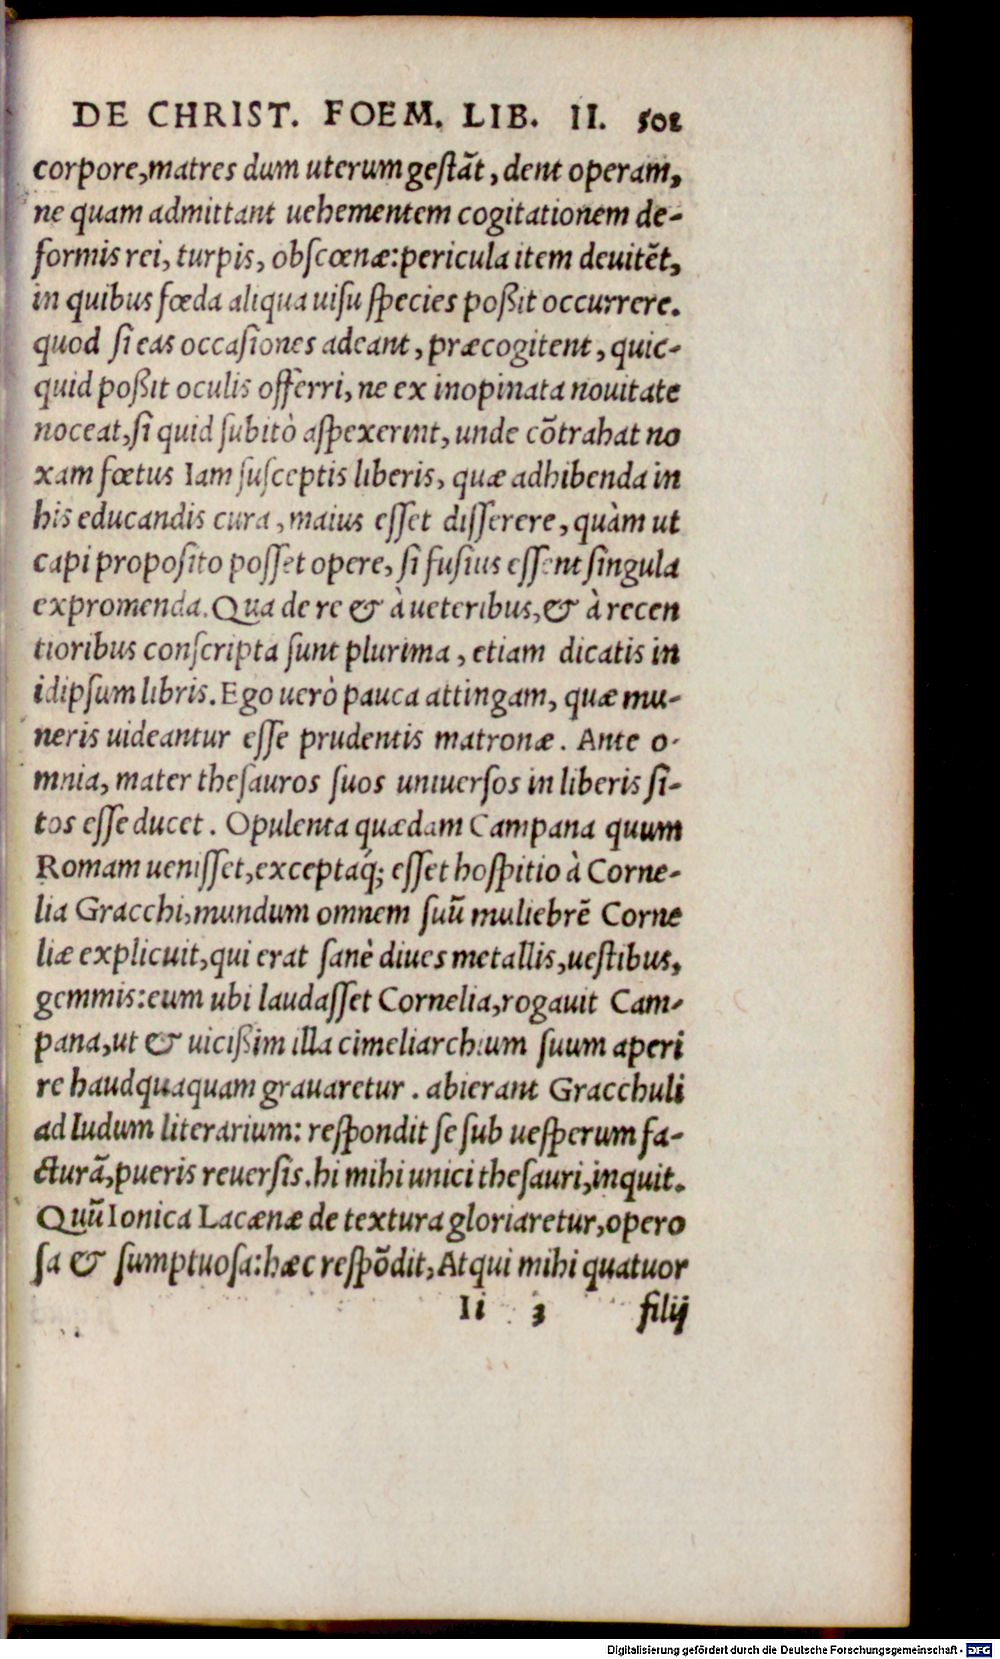 DE CHRIST. FOEM. LIB. II. 501
corpore, matres dum uterum gestāt, dent operam,
ne quam admittant uehementem cogitationem de-
formis rei, turpis, obscœnæ: pericula item deuitēt,
in quibus fœda aliqua uisu species poßit occurrere.
quod si eas occasiones adeant, præcogitent, quic-
quid poßit oculis offerri, ne ex inopinata nouitate
noceat, si quid subitò aspexerint, unde cōtrahat no
xam fœtus Iam susceptis liberis, quæ adhibenda in
his educandis cura, maius esset disserere, quàm ut
capi proposito posset opere, si fusius essent singula
expromenda. Qua de re & à ueteribus, & à recen
tioribus conscripta sunt plurima, etiam dicatis in
idipsum libris. Ego uerò pauca attingam, quæ mu-
neris uideantur esse prudentis matronæ. Ante o-
mnia, mater thesauros suos uniuersos in liberis si-
tos esse ducet. Opulenta quædam Campana quum
Romam uenisset, exceptaq́; esset hospitio à Corne-
lia Gracchi, mundum omnem suū muliebrē Corne
liæ explicuit, qui erat sanè diues metallis, uestibus,
gemmis: eum ubi laudasset Cornelia, rogauit Cam-
pana, ut & uicißim illa cimeliarchium suum aperi
re haudquaquam grauaretur. abierant Gracchuli
ad ludum literarium: respondit se sub uesperum fa-
cturā, pueris reuersis. hi mihi unici thesauri, inquit.
Quū Ionica Lacænæ de textura gloriaretur, opero
sa & sumptuosa: hæc respōdit, Atqui mihi quatuor
Ii 3 filij
Digitalisierung gefördert durch die Deutsche Forschungsgemeinschaft - DFG